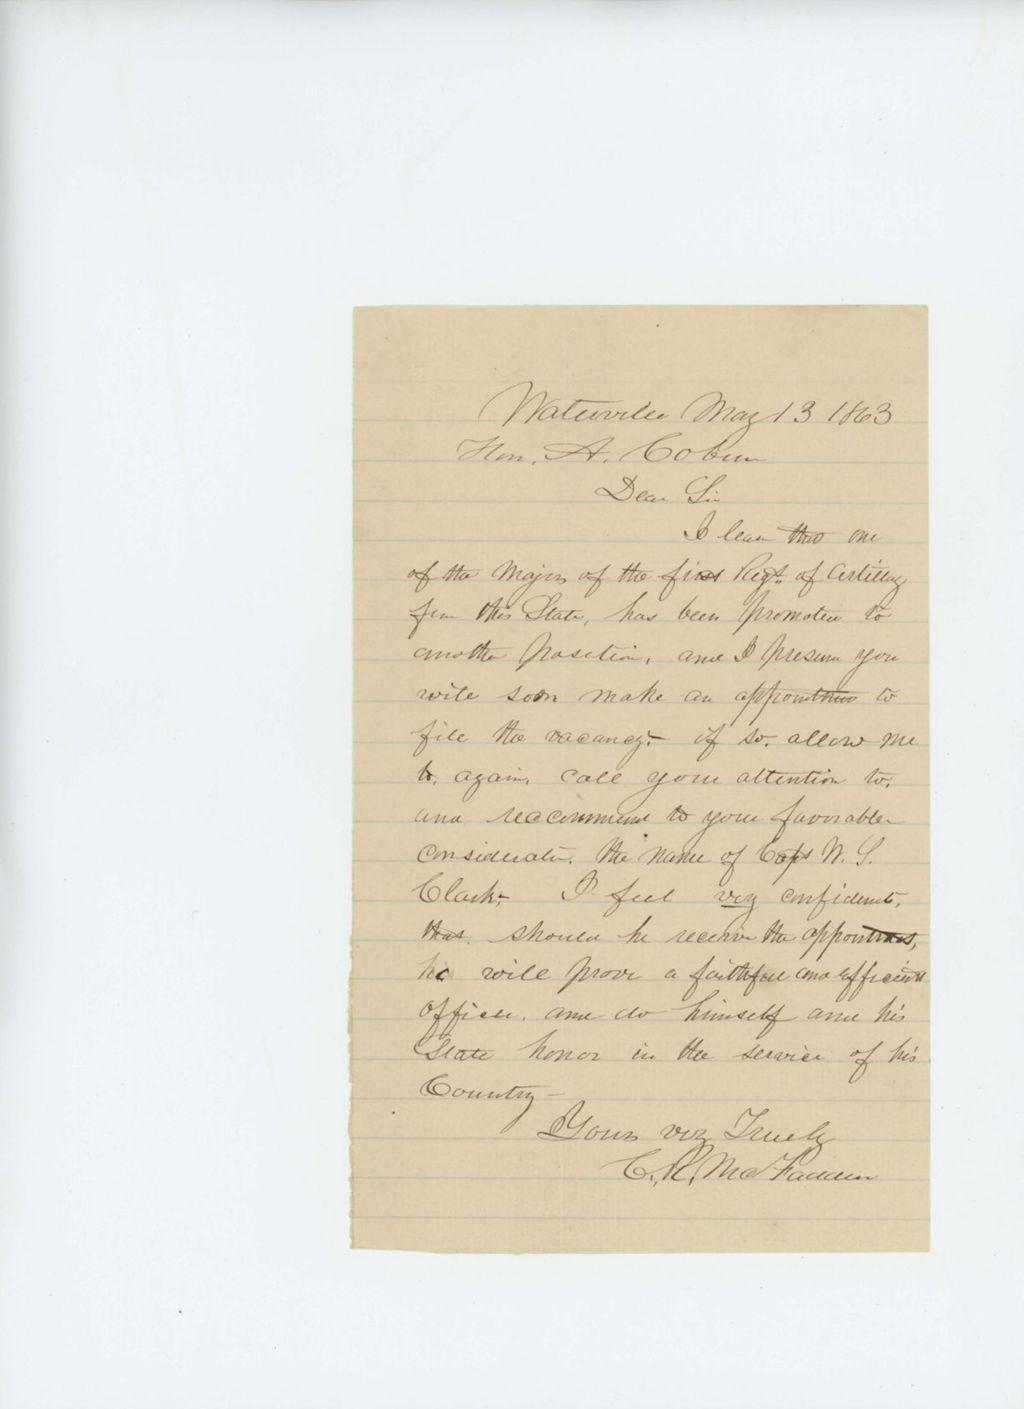 Waterville May 13 1863
Hon. A. Coburn
Dear Sir
I learn that one
of the Majors of the first Regt. of Artillery
from this State, has been promoted to
another position, and I presume you
will soon make an appointment to
fill the vacancy - if so, allow me
to, again, call your attention to,
and reccommend to your favorable
consideration, the name of Capt W. S.
Clark, I feel very confident,
that, should he receive the appointment,
he will prove a faithful and efficient
officer, and do himself and his
State honor in the service of his
Country -
Yours very Truely
C. R. McFadden